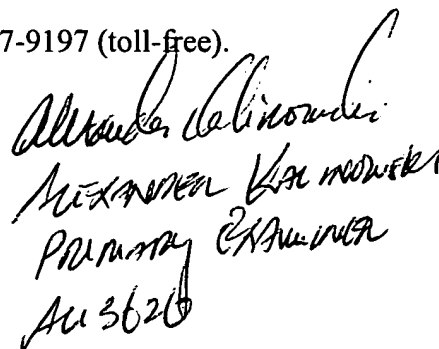 7-9197 (toll-free).
Alexander Kalinowski
ALEXANDER KALINOWSKI
PRIMARY EXAMINER
AU 3626